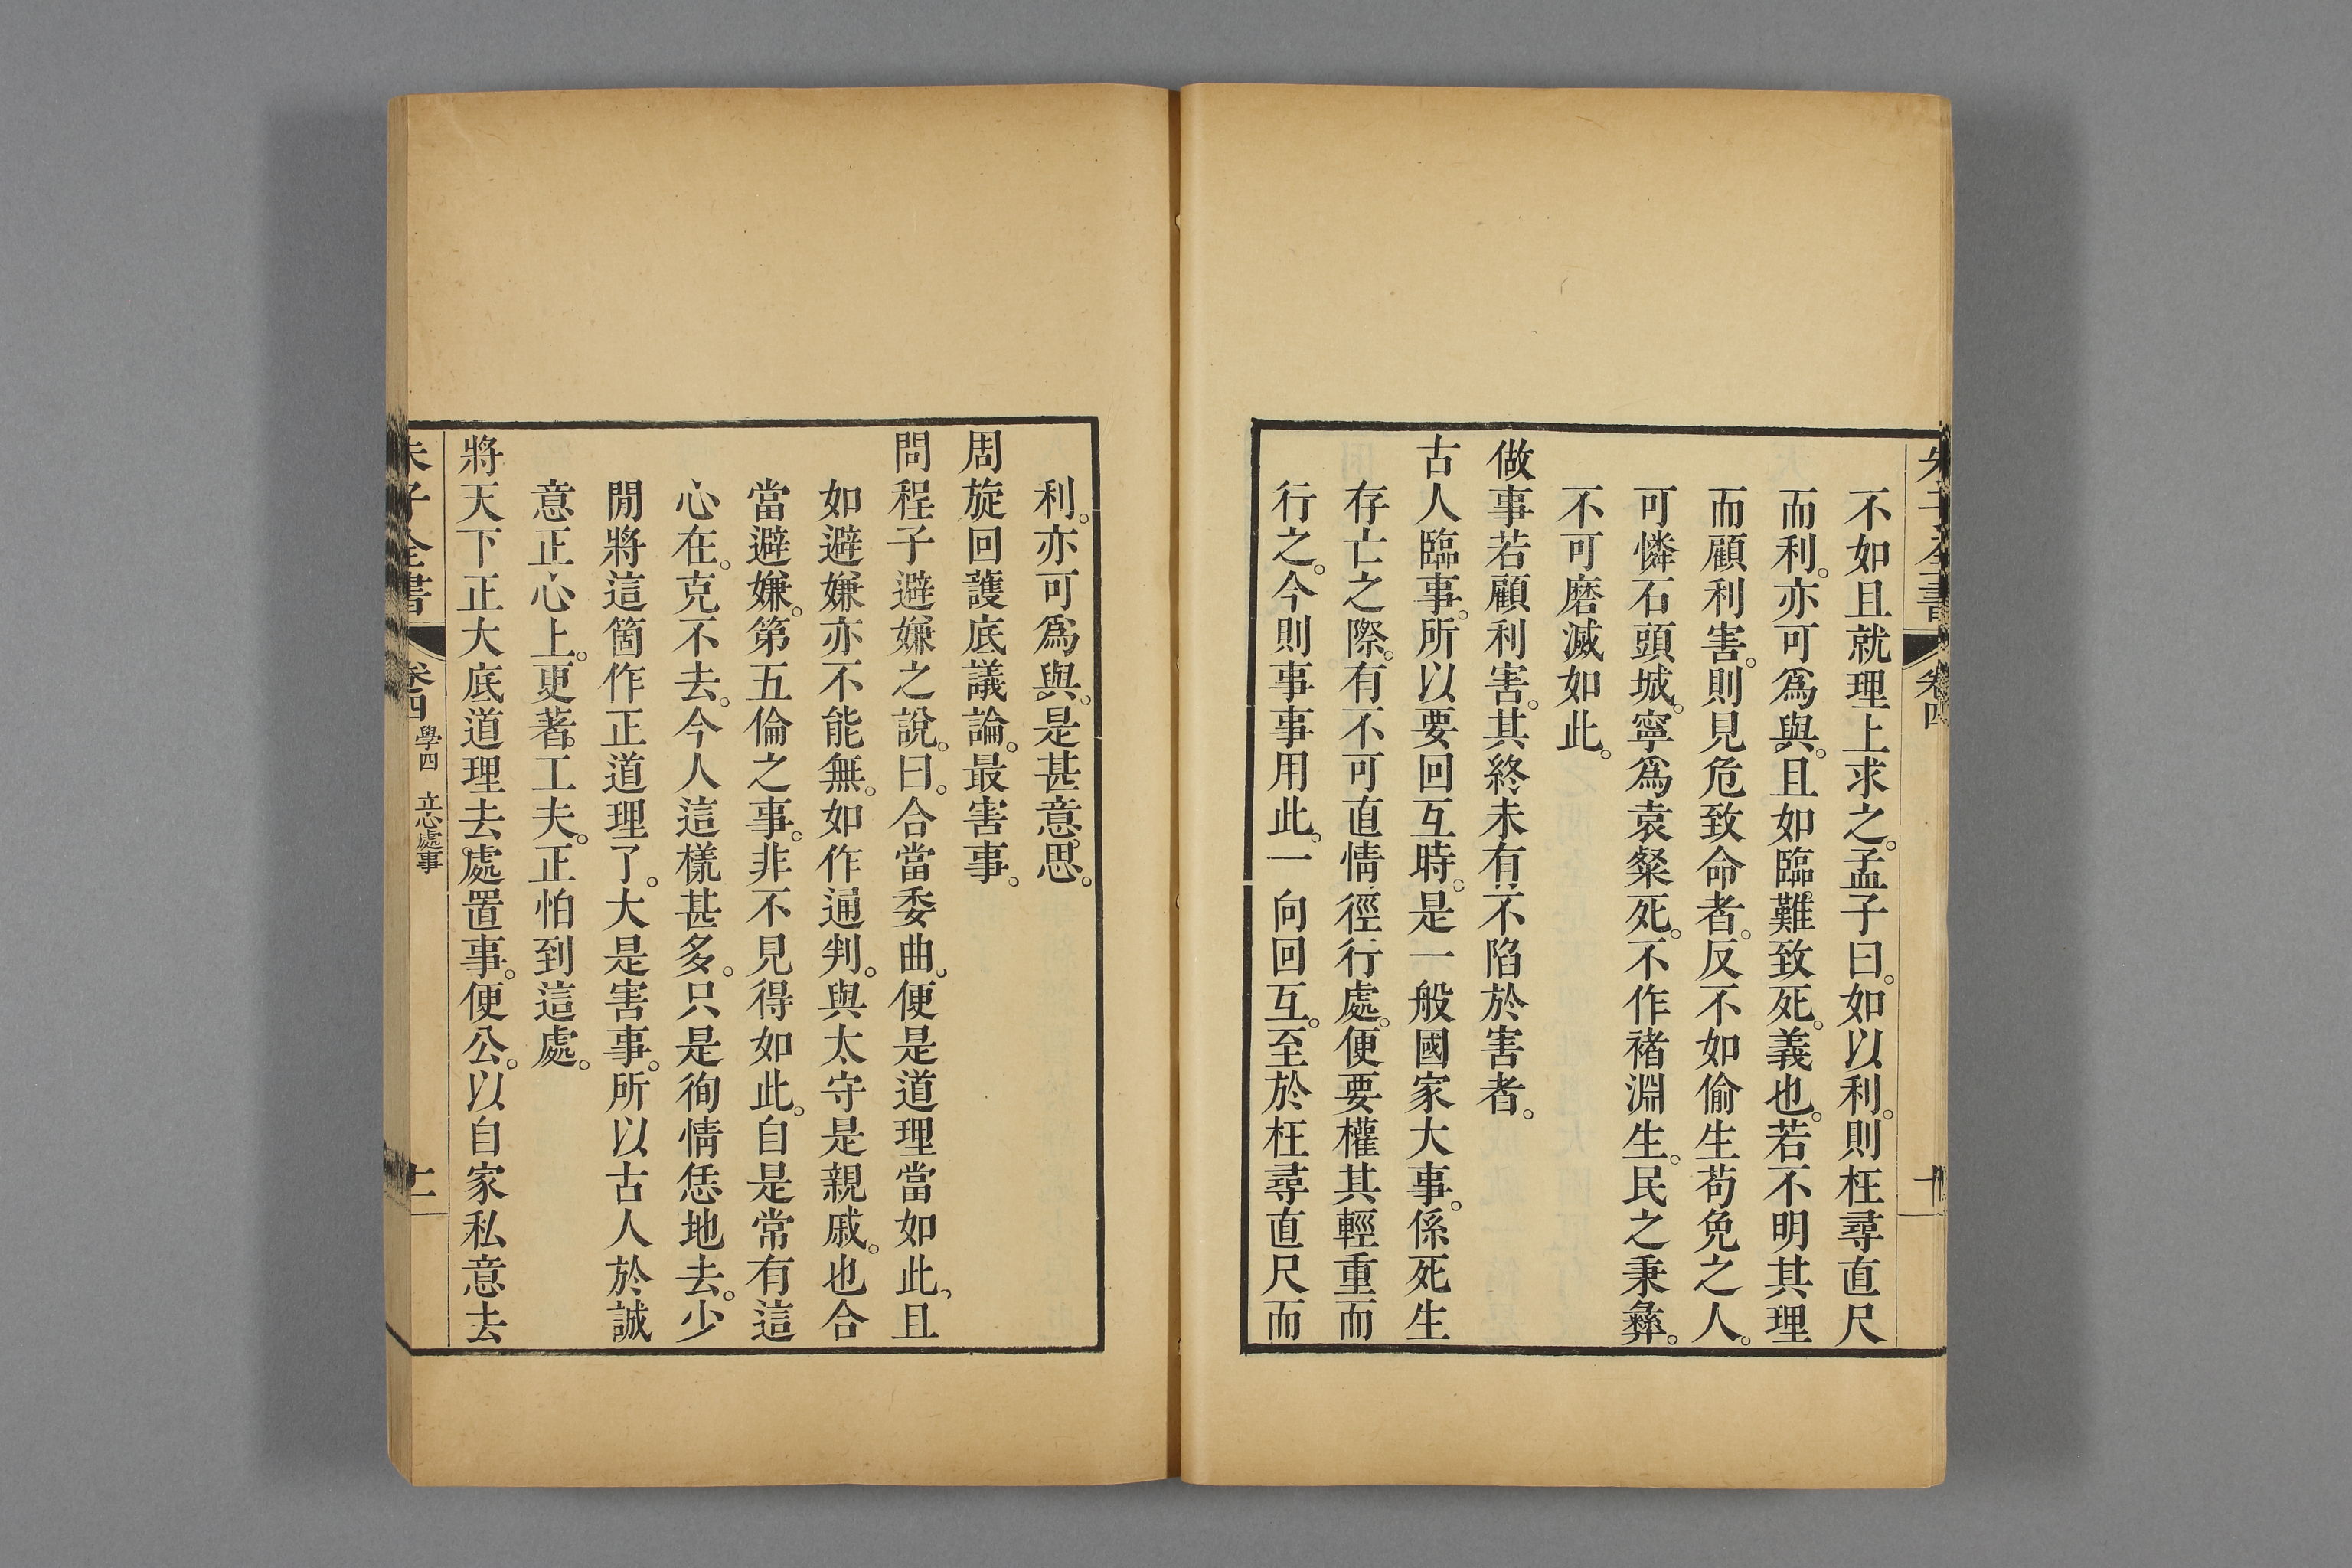 朱子全書 卷四 十
不如且就理上求之。孟子曰。如以利。則枉尋直尺
而利。亦可爲與。且如臨難致死。義也。若不明其理
而顧利害。則見危致命者。反不如偷生苟免之人。
可憐石頭城。寧爲袁粲死。不作褚淵生。民之秉彝。
不可磨滅如此。
做事若顧利害。其終未有不陷於害者。
古人臨事。所以要回互時。是一般國家大事。係死生
存亡之際。有不可直情徑行處。便要權其輕重而
行之。今則事事用此。一向回互。至於枉尋直尺而
利。亦可爲與。是甚意思。
周旋回護底議論。最害事。
問程子避嫌之說。曰。合當委曲。便是道理當如此、且
如避嫌亦不能無。如作通判。與太守是親戚。也合
當避嫌。第五倫之事。非不見得如此。自是常有這
心在。克不去。今人這樣甚多。只是徇情恁地去。少
閒將這箇作正道理了。大是害事。所以古人於誠
意正心上。更著工夫。正怕到這處。
將天下正大底道理去處置事。便公。以自家私意去
朱子全書 卷四 學四 立心處事 十一